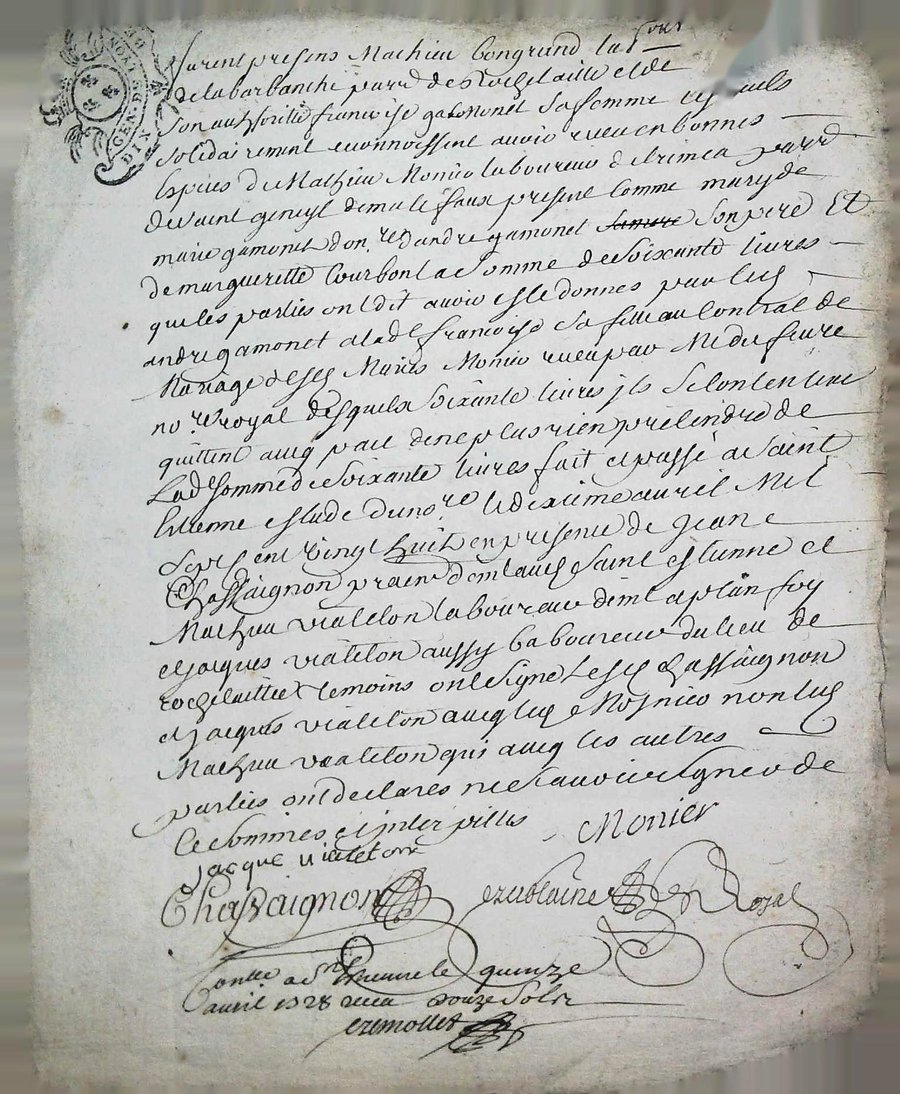 GEN. DE
DIX
furent presens Mathieu bongrand la
de la barbanche parr de Rochetaillé et de
son authorité françoise gamonet sa femme lesquels
solidairement reconnoissent avoir receu en bonnes
Espèces de Mathieu Monier laboureur de
de saint genest de malefaux present comme mary de
marie gamonet don. red andre gamonet son pere Et
de marguerette Courbon la somme de soixante livres
que les parties ont dit avoir esté donnes par luy
andre gamonet a lad. françoise sa fille au Contrat de
Mariage de Monier receu par Me
no.re royal desquels soixante livres ils se contentent
quittent avecq pact de ne plus rien prétendre de
Lad somme de soixante livres fait et passé a Saint
Estienne estude du no.re le dixieme avril Mil
Sept Cent vingt huit en presence de Jean
Chassaignon dud Saint estienne et
Mathieu vialeton laboureur de
et Jacques vialeton aussy laboureur du lieu de
rochetaillée temoins ont signe Chassaignon
et Jacques vialeton avecq luy Monier non luy
Mathieu vialeton qui avecq les autres
parties ont declares ne sçavoir signer de
ce sommes et interpelles
Monier
Jacque vialeton
Chassaignon
Royal
Contlle a St Etienne le quinze
avril 1728 receu douze sols